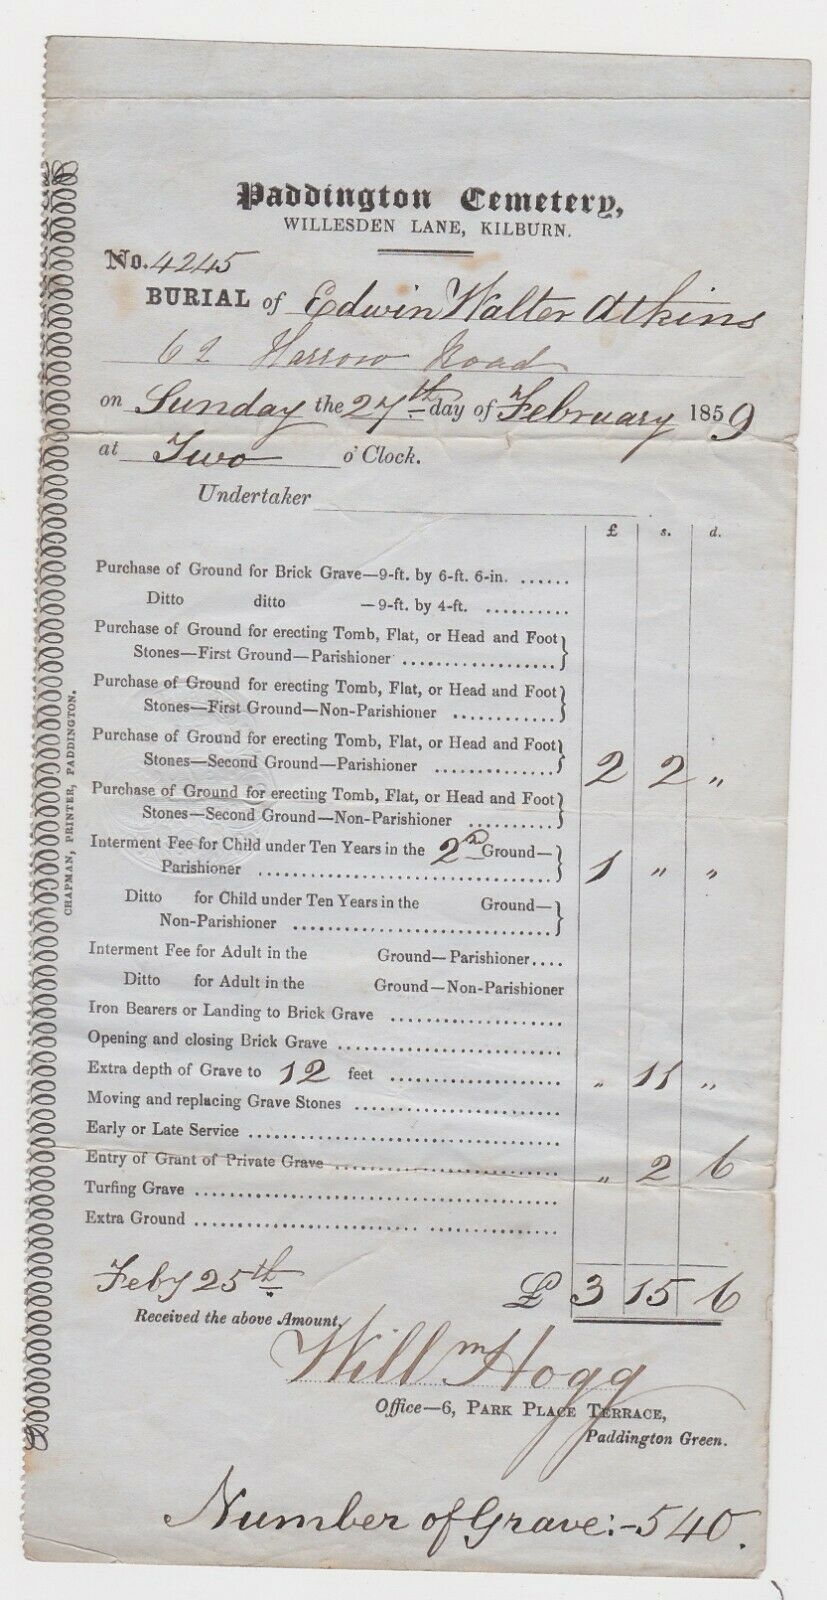 Paddington Cemetery,
WILLESDEN LANE, KILBURN.
No. 4245
BURIAL of Edwin Walter Atkins
62 Harrow Road
on Sunday the 27th day of February 1859
at Two o'Clock.
Undertaker
£ s. d.
Purchase of Ground for Brick Grave—9-ft. by 6-ft. 6-in. ......
Ditto ditto —9-ft. by 4-ft. ..........
Purchase of Ground for erecting Tomb, Flat, or Head and Foot
Stones—First Ground—Parishioner ..................
Purchase of Ground for erecting Tomb, Flat, or Head and Foot
Stones—First Ground—Non-Parishioner ............
Purchase of Ground for erecting Tomb, Flat, or Head and Foot
Stones—Second Ground—Parishioner .............. 2 2 "
Purchase of Ground for erecting Tomb, Flat, or Head and Foot
Stones—Second Ground—Non-Parishioner ..........
Interment Fee for Child under Ten Years in the 2nd Ground—
Parishioner .................................... 1 " "
Ditto for Child under Ten Years in the Ground—
Non-Parishioner ...............................
Interment Fee for Adult in the Ground—Parishioner....
Ditto for Adult in the Ground—Non-Parishioner
Iron Bearers or Landing to Brick Grave ....................
Opening and closing Brick Grave ..........................
Extra depth of Grave to 12 feet .................... " 11 "
Moving and replacing Grave Stones ........................
Early or Late Service ....................................
Entry of Grant of Private Grave .......................... " 2 6
Turfing Grave ...........................................
Extra Ground ...........................................
Feby 25th £ 3 15 6
Received the above Amount,
Willm Hogg
Office—6, PARK PLACE TERRACE,
Paddington Green.
Number of Grave:-540.
CHAPMAN, PRINTER, PADDINGTON.